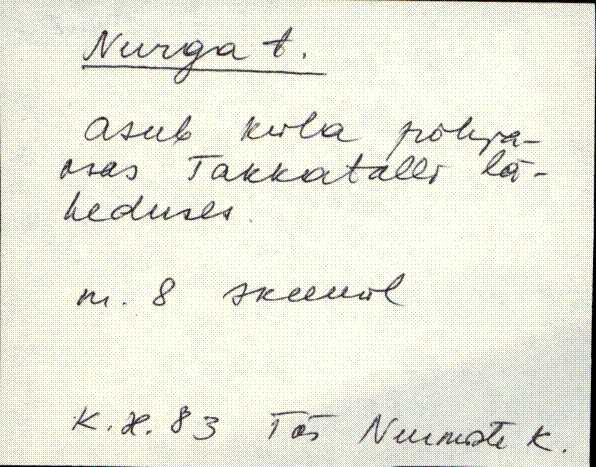 Nurga t.
asub küla põhja-
osas Takkatalli lä-
heduses.
m. 8 skeemil
K.H. 83 Tõs Nurmste k.